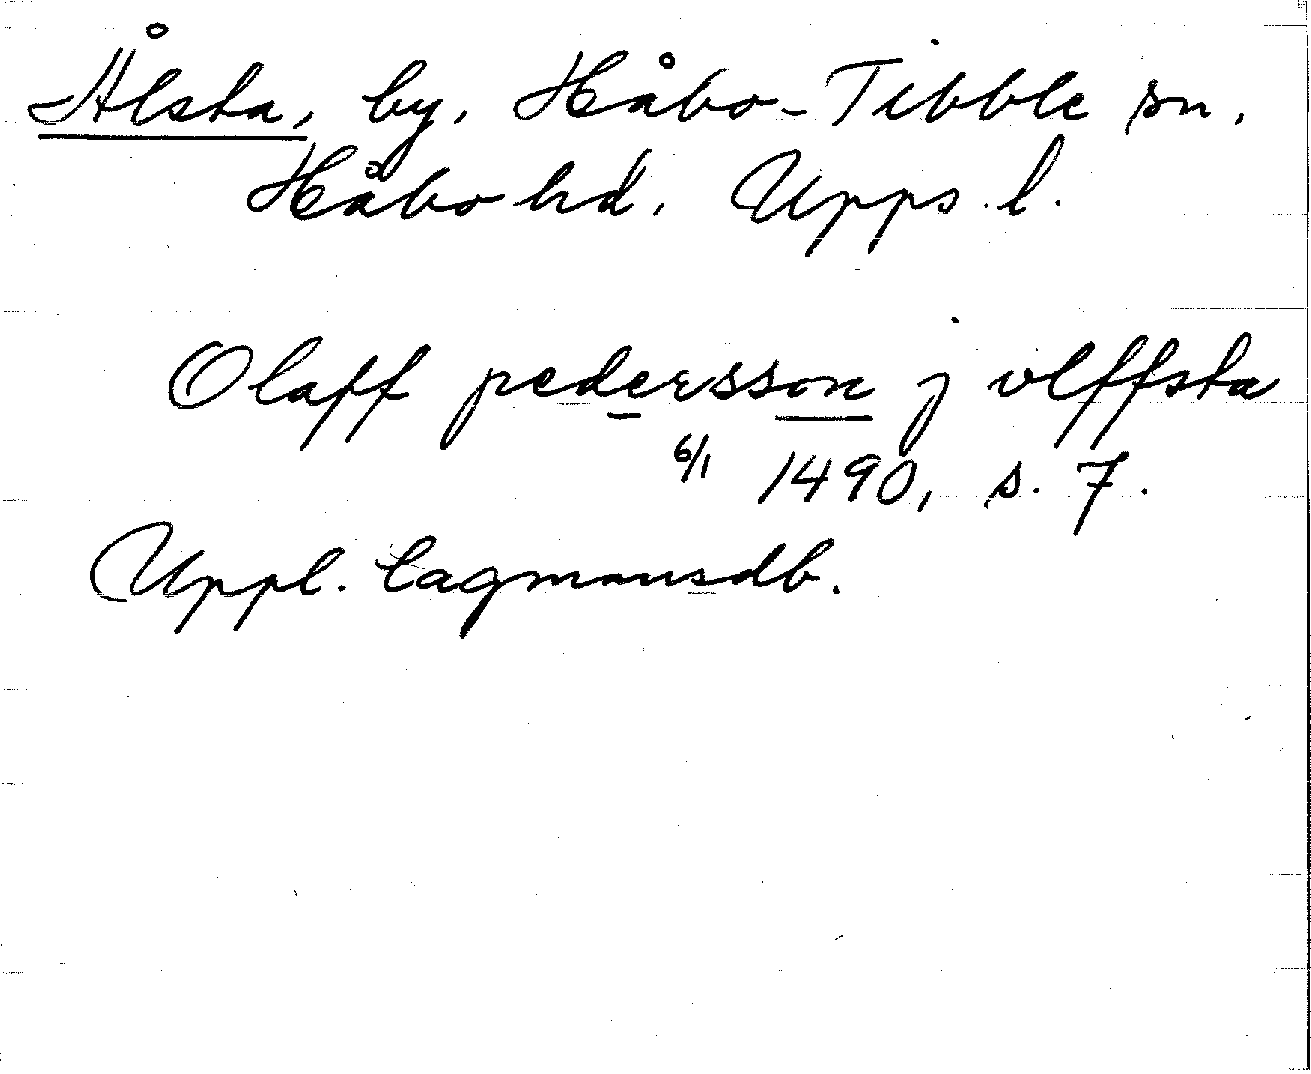 Ålsta, by, Håbo-Tibble sn.
Håbo hd, Upps. l.
Olaff pedersson j vlffsta
6/1 1490, s. 7.
Uppl. lagmansdb.